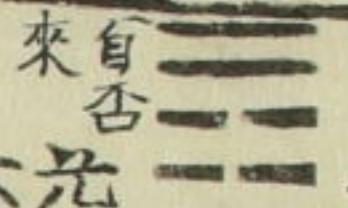 自否
來